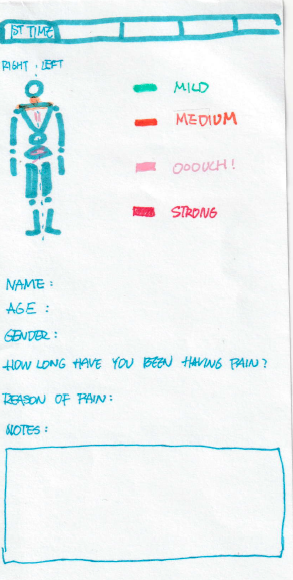 1ST TIME
RIGHT . LEFT
MILD
MEDIUM
OOOUCH!
STRONG
NAME :
AGE :
GENDER :
HOW LONG HAVE YOU BEEN HAVING PAIN?
REASON OF PAIN:
NOTES :